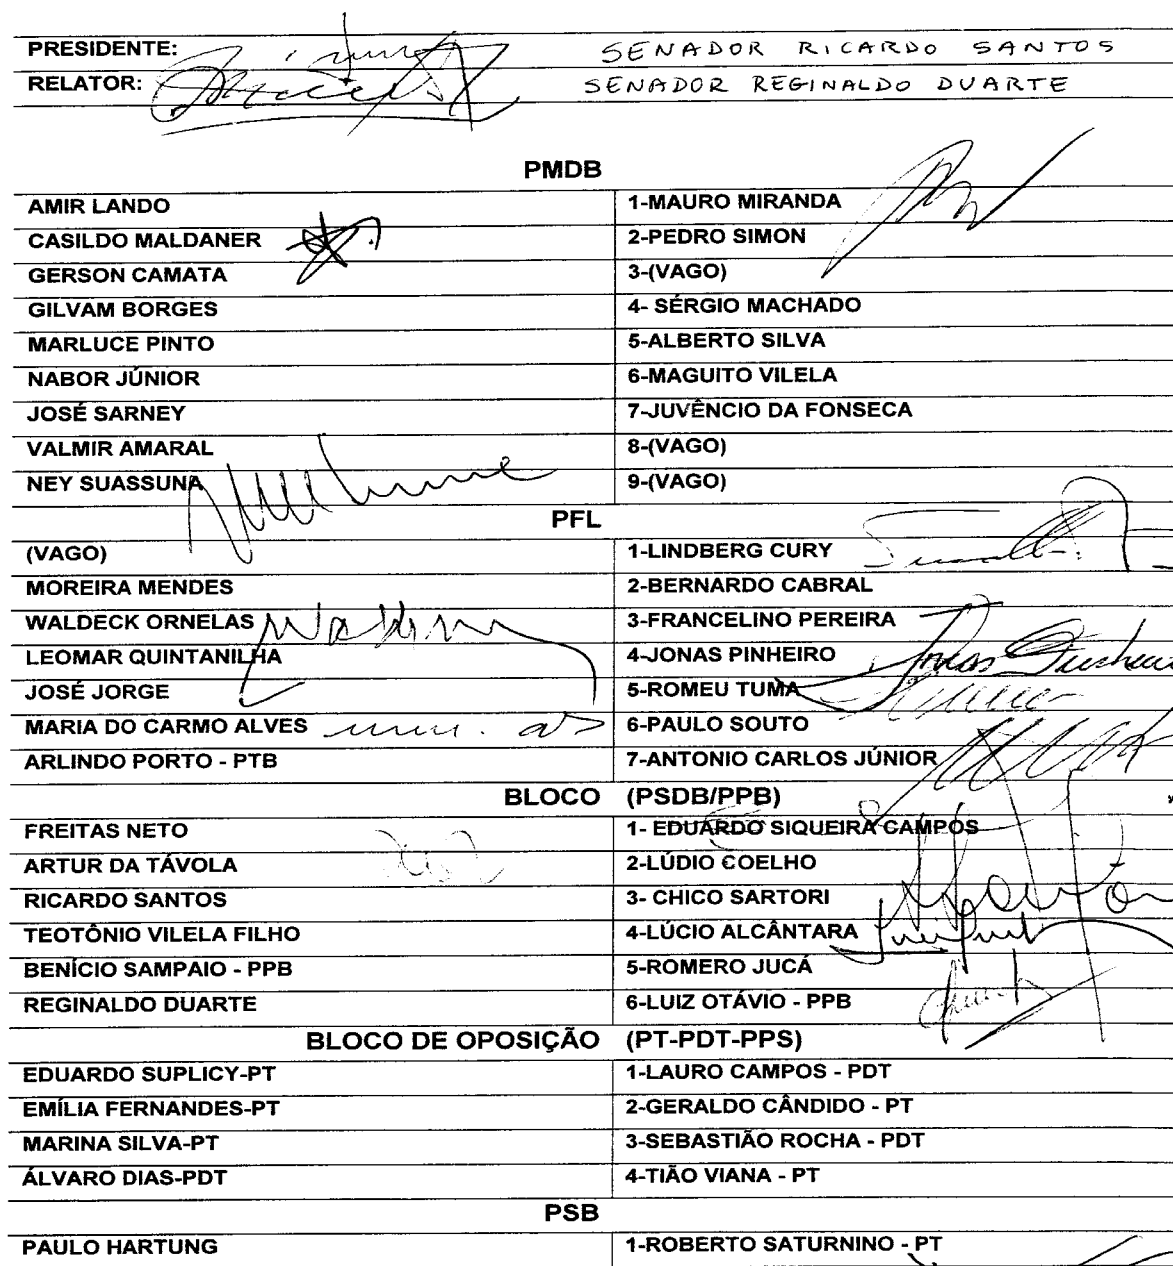 PRESIDENTE: SENADOR RICARDO SANTOS
RELATOR: SENADOR REGINALDO DUARTE
PMDB
AMIR LANDO 1-MAURO MIRANDA
CASILDO MALDANER 2-PEDRO SIMON
GERSON CAMATA 3-(VAGO)
GILVAM BORGES 4- SÉRGIO MACHADO
MARLUCE PINTO 5-ALBERTO SILVA
NABOR JÚNIOR 6-MAGUITO VILELA
JOSÉ SARNEY 7-JUVÊNCIO DA FONSECA
VALMIR AMARAL 8-(VAGO)
NEY SUASSUNA 9-(VAGO)
PFL
(VAGO) 1-LINDBERG CURY
MOREIRA MENDES 2-BERNARDO CABRAL
WALDECK ORNELAS 3-FRANCELINO PEREIRA
LEOMAR QUINTANILHA 4-JONAS PINHEIRO
JOSÉ JORGE 5-ROMEU TUMA
MARIA DO CARMO ALVES 6-PAULO SOUTO
ARLINDO PORTO - PTB 7-ANTONIO CARLOS JÚNIOR
BLOCO (PSDB/PPB)
FREITAS NETO 1- EDUARDO SIQUEIRA CAMPOS
ARTUR DA TÁVOLA 2-LÚDIO COELHO
RICARDO SANTOS 3- CHICO SARTORI
TEOTÔNIO VILELA FILHO 4-LÚCIO ALCÂNTARA
BENÍCIO SAMPAIO - PPB 5-ROMERO JUCÁ
REGINALDO DUARTE 6-LUIZ OTÁVIO - PPB
BLOCO DE OPOSIÇÃO (PT-PDT-PPS)
EDUARDO SUPLICY-PT 1-LAURO CAMPOS - PDT
EMÍLIA FERNANDES-PT 2-GERALDO CÂNDIDO - PT
MARINA SILVA-PT 3-SEBASTIÃO ROCHA - PDT
ÁLVARO DIAS-PDT 4-TIÃO VIANA - PT
PSB
PAULO HARTUNG 1-ROBERTO SATURNINO - PT